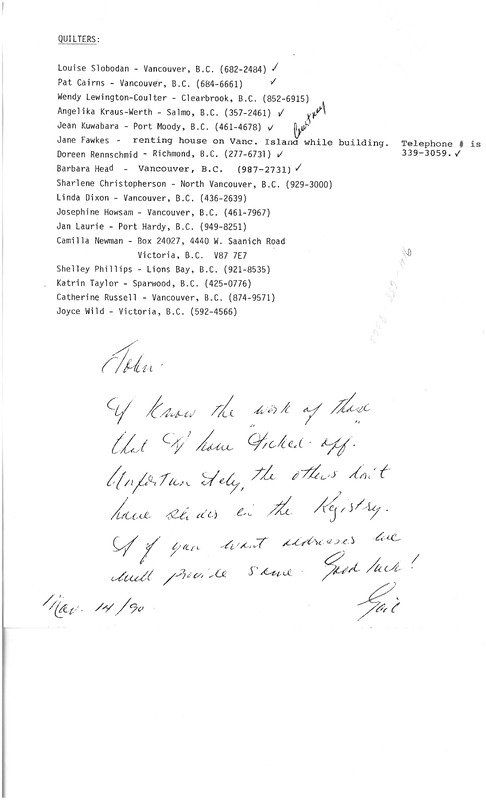 QUILTERS:
Louise Slobodan - Vancouver, B.C. (682-2484) ✓
Pat Cairns - Vancouver, B.C. (684-6661) ✓
Wendy Lewington-Coulter - Clearbrook, B.C. (852-6915)
Angelika Kraus-Werth - Salmo, B.C. (357-2461) ✓
Jean Kuwabara - Port Moody, B.C. (461-4678) ✓
Courtenay
Jane Fawkes - renting house on Vanc. Island while building. Telephone # is
339-3059. ✓
Doreen Rennschmid - Richmond, B.C. (277-6731) ✓
Barbara Head - Vancouver, B.C. (987-2731) ✓
Sharlene Christopherson - North Vancouver, B.C. (929-3000)
Linda Dixon - Vancouver, B.C. (436-2639)
Josephine Howsam - Vancouver, B.C. (461-7967)
Jan Laurie - Port Hardy, B.C. (949-8251)
Camilla Newman - Box 24027, 4440 W. Saanich Road
Victoria, B.C. V87 7E7
Shelley Phillips - Lions Bay, B.C. (921-8535)
Katrin Taylor - Sparwood, B.C. (425-0776)
Catherine Russell - Vancouver, B.C. (874-9571)
Joyce Wild - Victoria, B.C. (592-4566)
John.
I know the work of those
that I have "ticked-off".
Unfortunately, the others don't
have slides in the Registry.
If you want addresses we
will provide same. Good luck!
Mar. 14/90. Gail